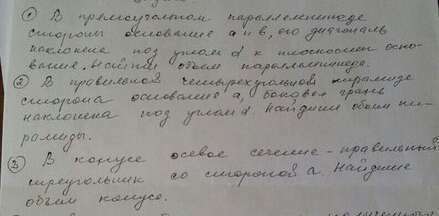 ① В прямоугольном параллелепипеде
стороны основания a и в, его диагональ
наклонена под углом α к плоскости осно-
вания. Найти объем параллелепипеда.
② В правильной четырехугольной пирамиде
сторона основания a, боковая грань
наклонена под углом α. Найдите объем пи-
рамиды.
③ В конусе осевое сечение - правильный
треугольник со стороной a. Найдите
объем конуса.